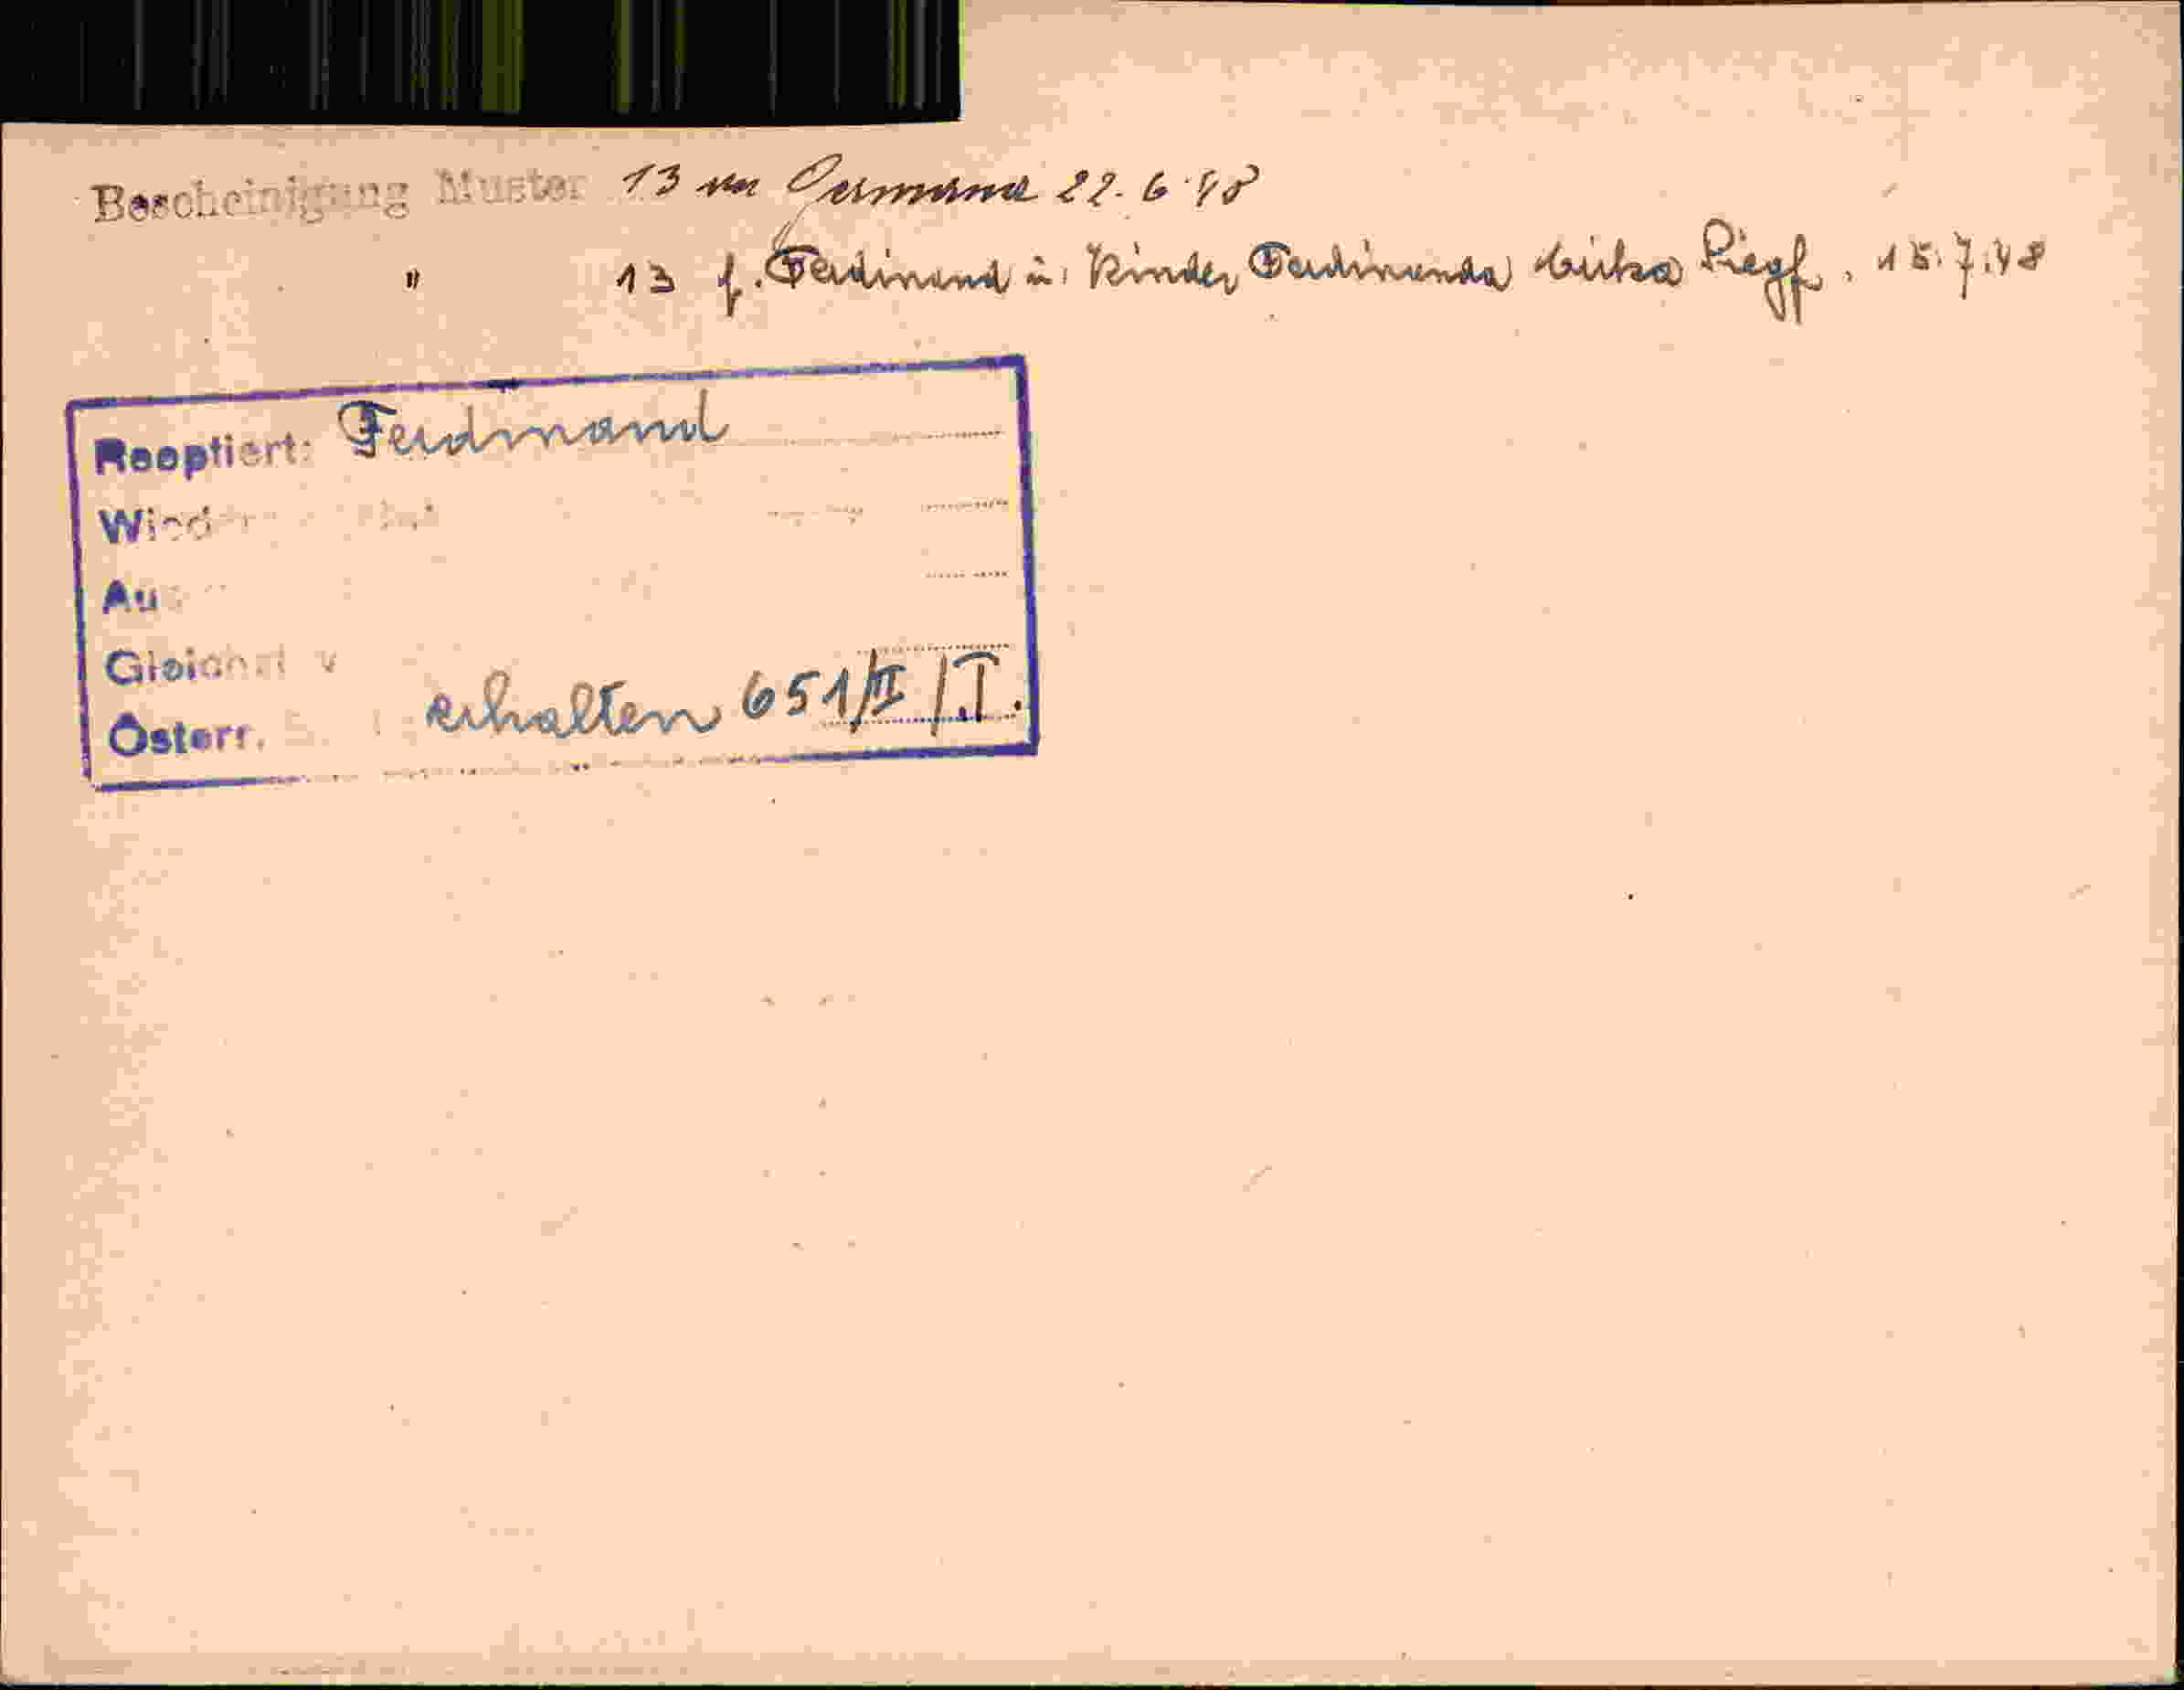 Bescheinigung Muster 13 an Germana 22.6.48
" 13 f. Ferdinand u. Kinder Ferdinanda Luisa Siegf. 15.7.48
Reoptiert: Ferdinand
Österr. erhalten 651/II/I.